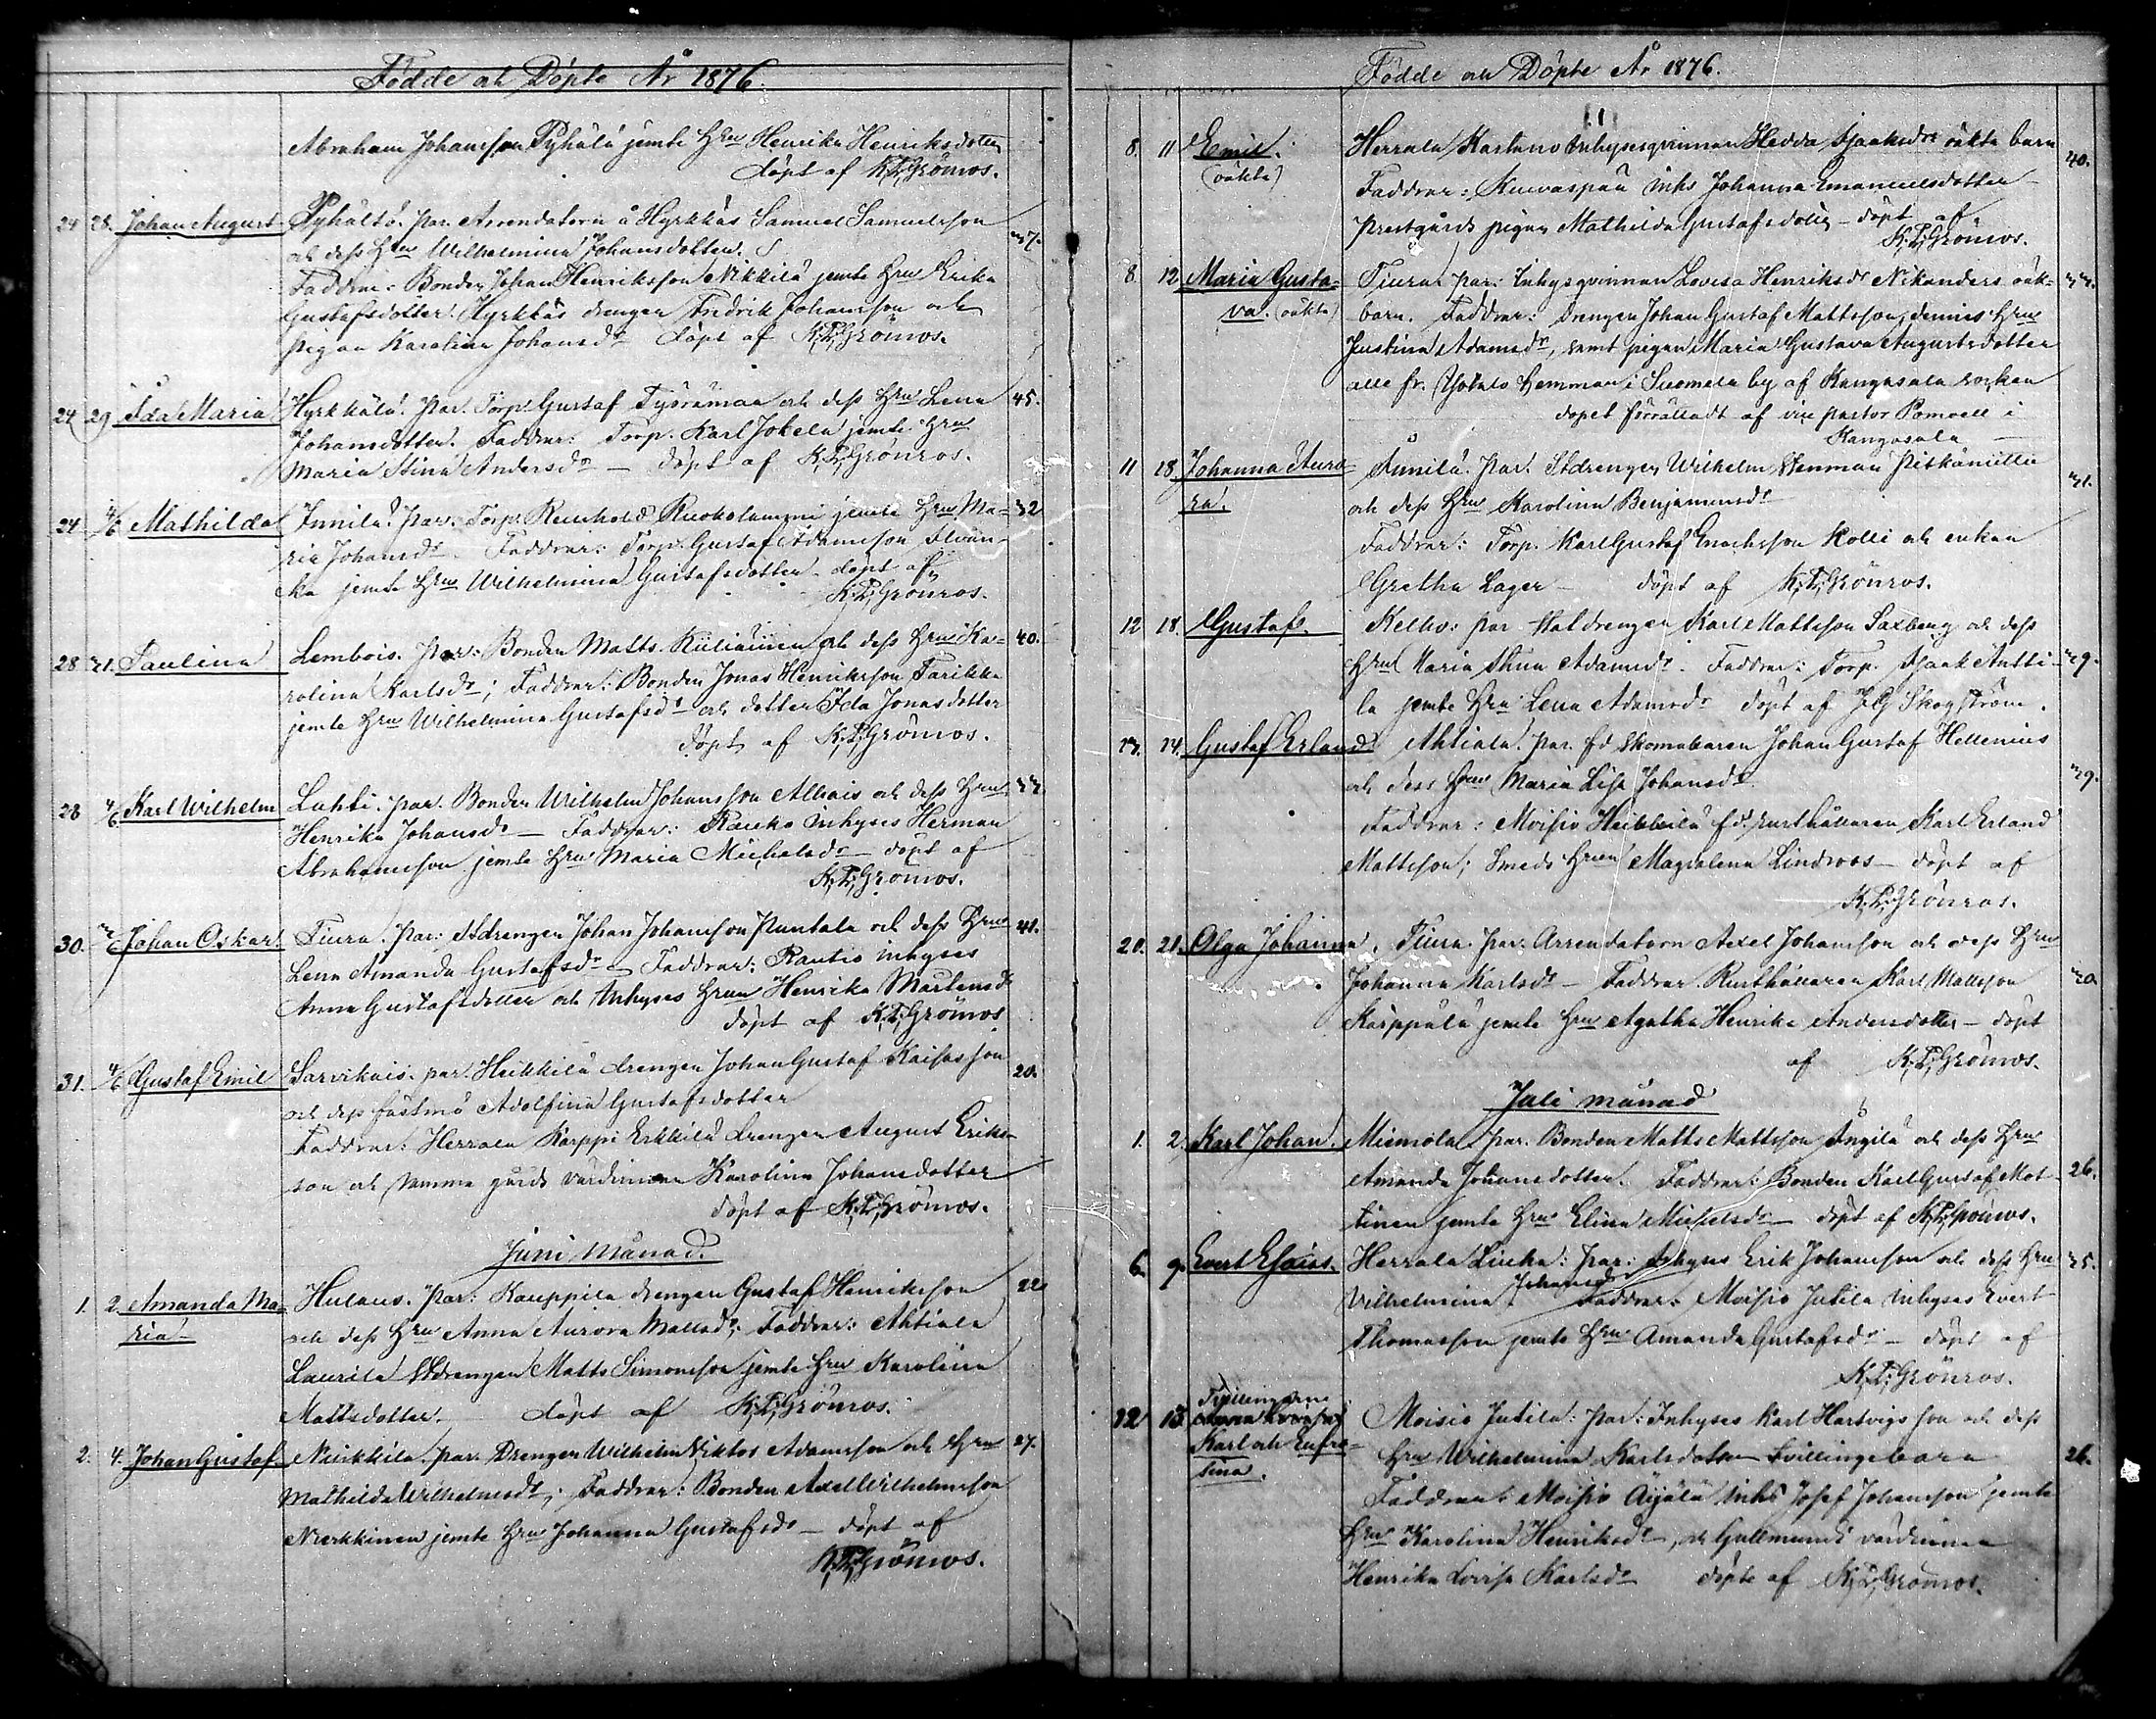 Födde och Döpte År 1876.
Abraham Johansson Pyhälä jemte Hru Henrika Henriksdotter
döpt af K. T. Grönroos.
24 28. Johan August Pyhältö. par. Arrendatorn å Hyrkkäs Samuel Samuelsson 37.
och dess Hru Wilhelmina Johansdotter.
Faddrar: Bonden Johan Henriksson Nikkilä jemte Hru Erika
Gustafsdotter. Hyrkkäs drengen Fredrik Johansson och
pigan Karolina Johansdr döpt af K. T. Grönroos.
24 29 Ida Maria Hyrkkälä. par. Torp. Gustaf Työrämaa och dess Hru Lena 45.
Johansdotter. Faddrar: Torp. Karl Jokela jemte Hru
Maria Stina Andersdr — döpt af K. T. Grönroos.
24 4/6 Mathilda Innilä. par: Torp. Reinhold Ruokolammi jemte Hru Ma- 32
ria Johansdr. Faddrar: Torp. Gustaf Adamsson
ka jemte Hru Wilhelmina Gustafsdotter - döpt af
K. T. Grönroos.
28 31. Paulina Lembois. par: Bonden Matts och dess Hru Ka- 40.
rolina Karlsdr; Faddrar: Bonden Jonas Henriksson Tarikka
jemte Hru Wilhelmina Gustafsdr och dotter Ida Jonasdotter
döpt af K. T. Grönroos.
28 4/6 Karl Wilhelm Lahti. par. Bonden Wilhelm Johansson och dess Hru 33.
Henrika Johansdr — Faddrar: Inhyses Herman
Abrahamsson jemte Hru Maria Michelsdr - döpt af
K. T. Grönroos.
30. 3/6 Johan Oskar Tiura. par: Stdrengen Johan Johansson Puntala och dess Hru 41.
Lena Amanda Gustafsdr — Faddrar: Rautio inhyses
Anna Gustafsdotter och Inhyses Hrun Henrika Martensdr
döpt af K. T. Grönroos
31. 4/6 Gustaf Emil Sarvikais. par. Heikkilä drengen Johan Gustaf Kaisasson 20.
och dess fästmö Adolfina Gustafsdotter
Faddrar: Herrala Karppi Erkkilä drengen August Eriks-
son och samma gårds värdinnan Karolina Johansdotter
döpt af K. T. Grönroos.
Juni Månad.
1. 2. Amanda Ma- Hulaus. par: Kauppila drengen Gustaf Henriksson 22
ria och dess Hru Anna Aurora Mattsdr; Faddrar: Ahtiala
Laurila Stdrengen Matts Simonsson jemte Hru Karolina
Mattsdotter. — döpt af K. T. Grönroos.
2. 4. Johan Gustaf Nurkkila. par. Drengen Wilhelm Viktor Adamsson och Hru 27.
Mathilda Wilhelmsdr, Faddrar: Bonden Axel Wilhelmsson
jemte Hru Johanna Gustafsdr — döpt af
K. T. Grönroos.
Födde och Döpte År 1876.
8. 11 Emil. Herrala Kartano Inhysesqvinnan Hedda Isaksdrs oäkta barn 40.
(oäkta) Faddrar: inhs Johanna Emanuelsdotter
prestgårds pigan Mathilda Gustafsdotter — döpt af
K. T. Grönroos.
8. 12. Maria Gusta- Tiura par: Inhysqvinnan Lovisa Henriksdr Nikanders oäk- 33.
va. (oäkta) barn. Faddrar: Drengen Johan Gustaf Mattsson, dennes Hru
Justina Adamsdr, samt pigan Maria Gustava Augustsdotter
alla fr. hemman i Suomela by af Kangasala socken
dopet förrättadt af vice pastor i
Kangasala —
11 18. Johanna Auro- Annila. par. Stdrengen Wilhelm 31.
ra. och dess Hru Karolina Benjaminsdr
Faddrar: Torp. Karl Gustaf Enochsson Kolli och enkan
Gretha Lager — döpt af K. T. Grönroos.
12 18. Gustaf. Kelho: par Statdrengen Karl Mattsson Saxberg och dess
Hru Maria Stina Adamsdr. Faddrar: Torp. Isaak Antti- 39.
la jemte Hru Lena Adamsdr döpt af J G Skogström.
13. 14. Gustaf Erland Ahtiala. par. fd Skomakaren Johan Gustaf Hellenius
och dess Hru Maria Lisa Johansdr 39.
Faddrar: Moisio Heikkilä fd rusthållaren Karl Erland
Mattsson; Smeds Hrun Magdalena Lindroos — döpt af
K. T. Grönroos.
20. 21. Olga Johanna. Tiura. par. Arrendatorn Axel Johansson och dess Hru
Johanna Karlsdr — Faddrar Rusthållaren Karl Mattsson 30.
Karppälä jemte Hru Agatha Henrika Andersdotter — döpt
af K. T. Grönroos.
Juli månad
1. 2. Karl Johan. Miemola par. Bonden Matts Mattsson Ingilä och dess Hru
Amanda Johansdotter. Faddrar: Bonden Karl Gustaf Mat- 26.
tinen jemte Hru Elina Michelsdr — döpt af K. T. Grönroos.
6. 9. Evert Esaias. Herrala par: Inhyses Erik Johansson och dess Hru 35.
Vilhelmina Johansdr Faddrar: Moisio Jutila inhyses Evert
Thomasson jemte Hru Amanda Gustafsdr — döpt af
K. T. Grönroos.
12 13. Tvillingarne
Karl och Eufro- Moisio Jutila: par: Inhyses Karl Hartvigsson och dess
sina. Hru Wilhelmina Karlsdotter tvillingebarn 26.
Faddrar: Moisio Äijälä inhs Josef Johansson jemte
Hru Karolina Henriksdr, och värdinnan
Henrika Lovisa Karlsdr döpte af K. T. Grönroos.